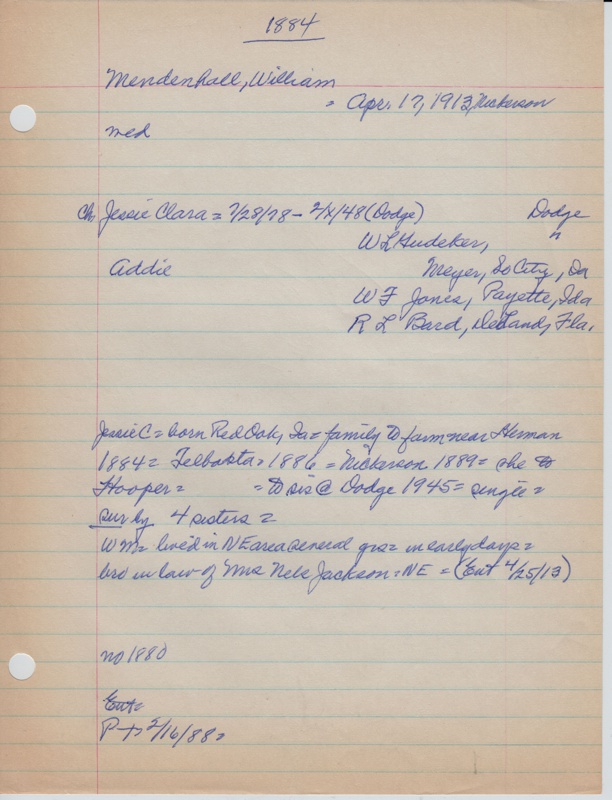 1884
Mendenhall, William
= Apr. 17, 1913, Nickerson
med
Ch, Jessie Clara = 7/28/78 - 2/X/48 (Dodge) Dodge
W L Hudeker, "
Addie Meyer, So City, Da
W F Jones, Payette, Ida
R L Bard, DeLand, Fla.
Jessie C = born Red Oak, Ia = family to farm near Herman
1884 = Tekamah = 1886 = Nickerson 1889 = she to
Hooper = = to sis @ Dodge 1945 = single =
sur by 4 sisters =
WM = lived in NE area several yrs = in early days =
bro in law of Mrs Nels Jackson = NE = (Ent 4/25/13)
no 1880
Ent =
P + 2/16/88 =